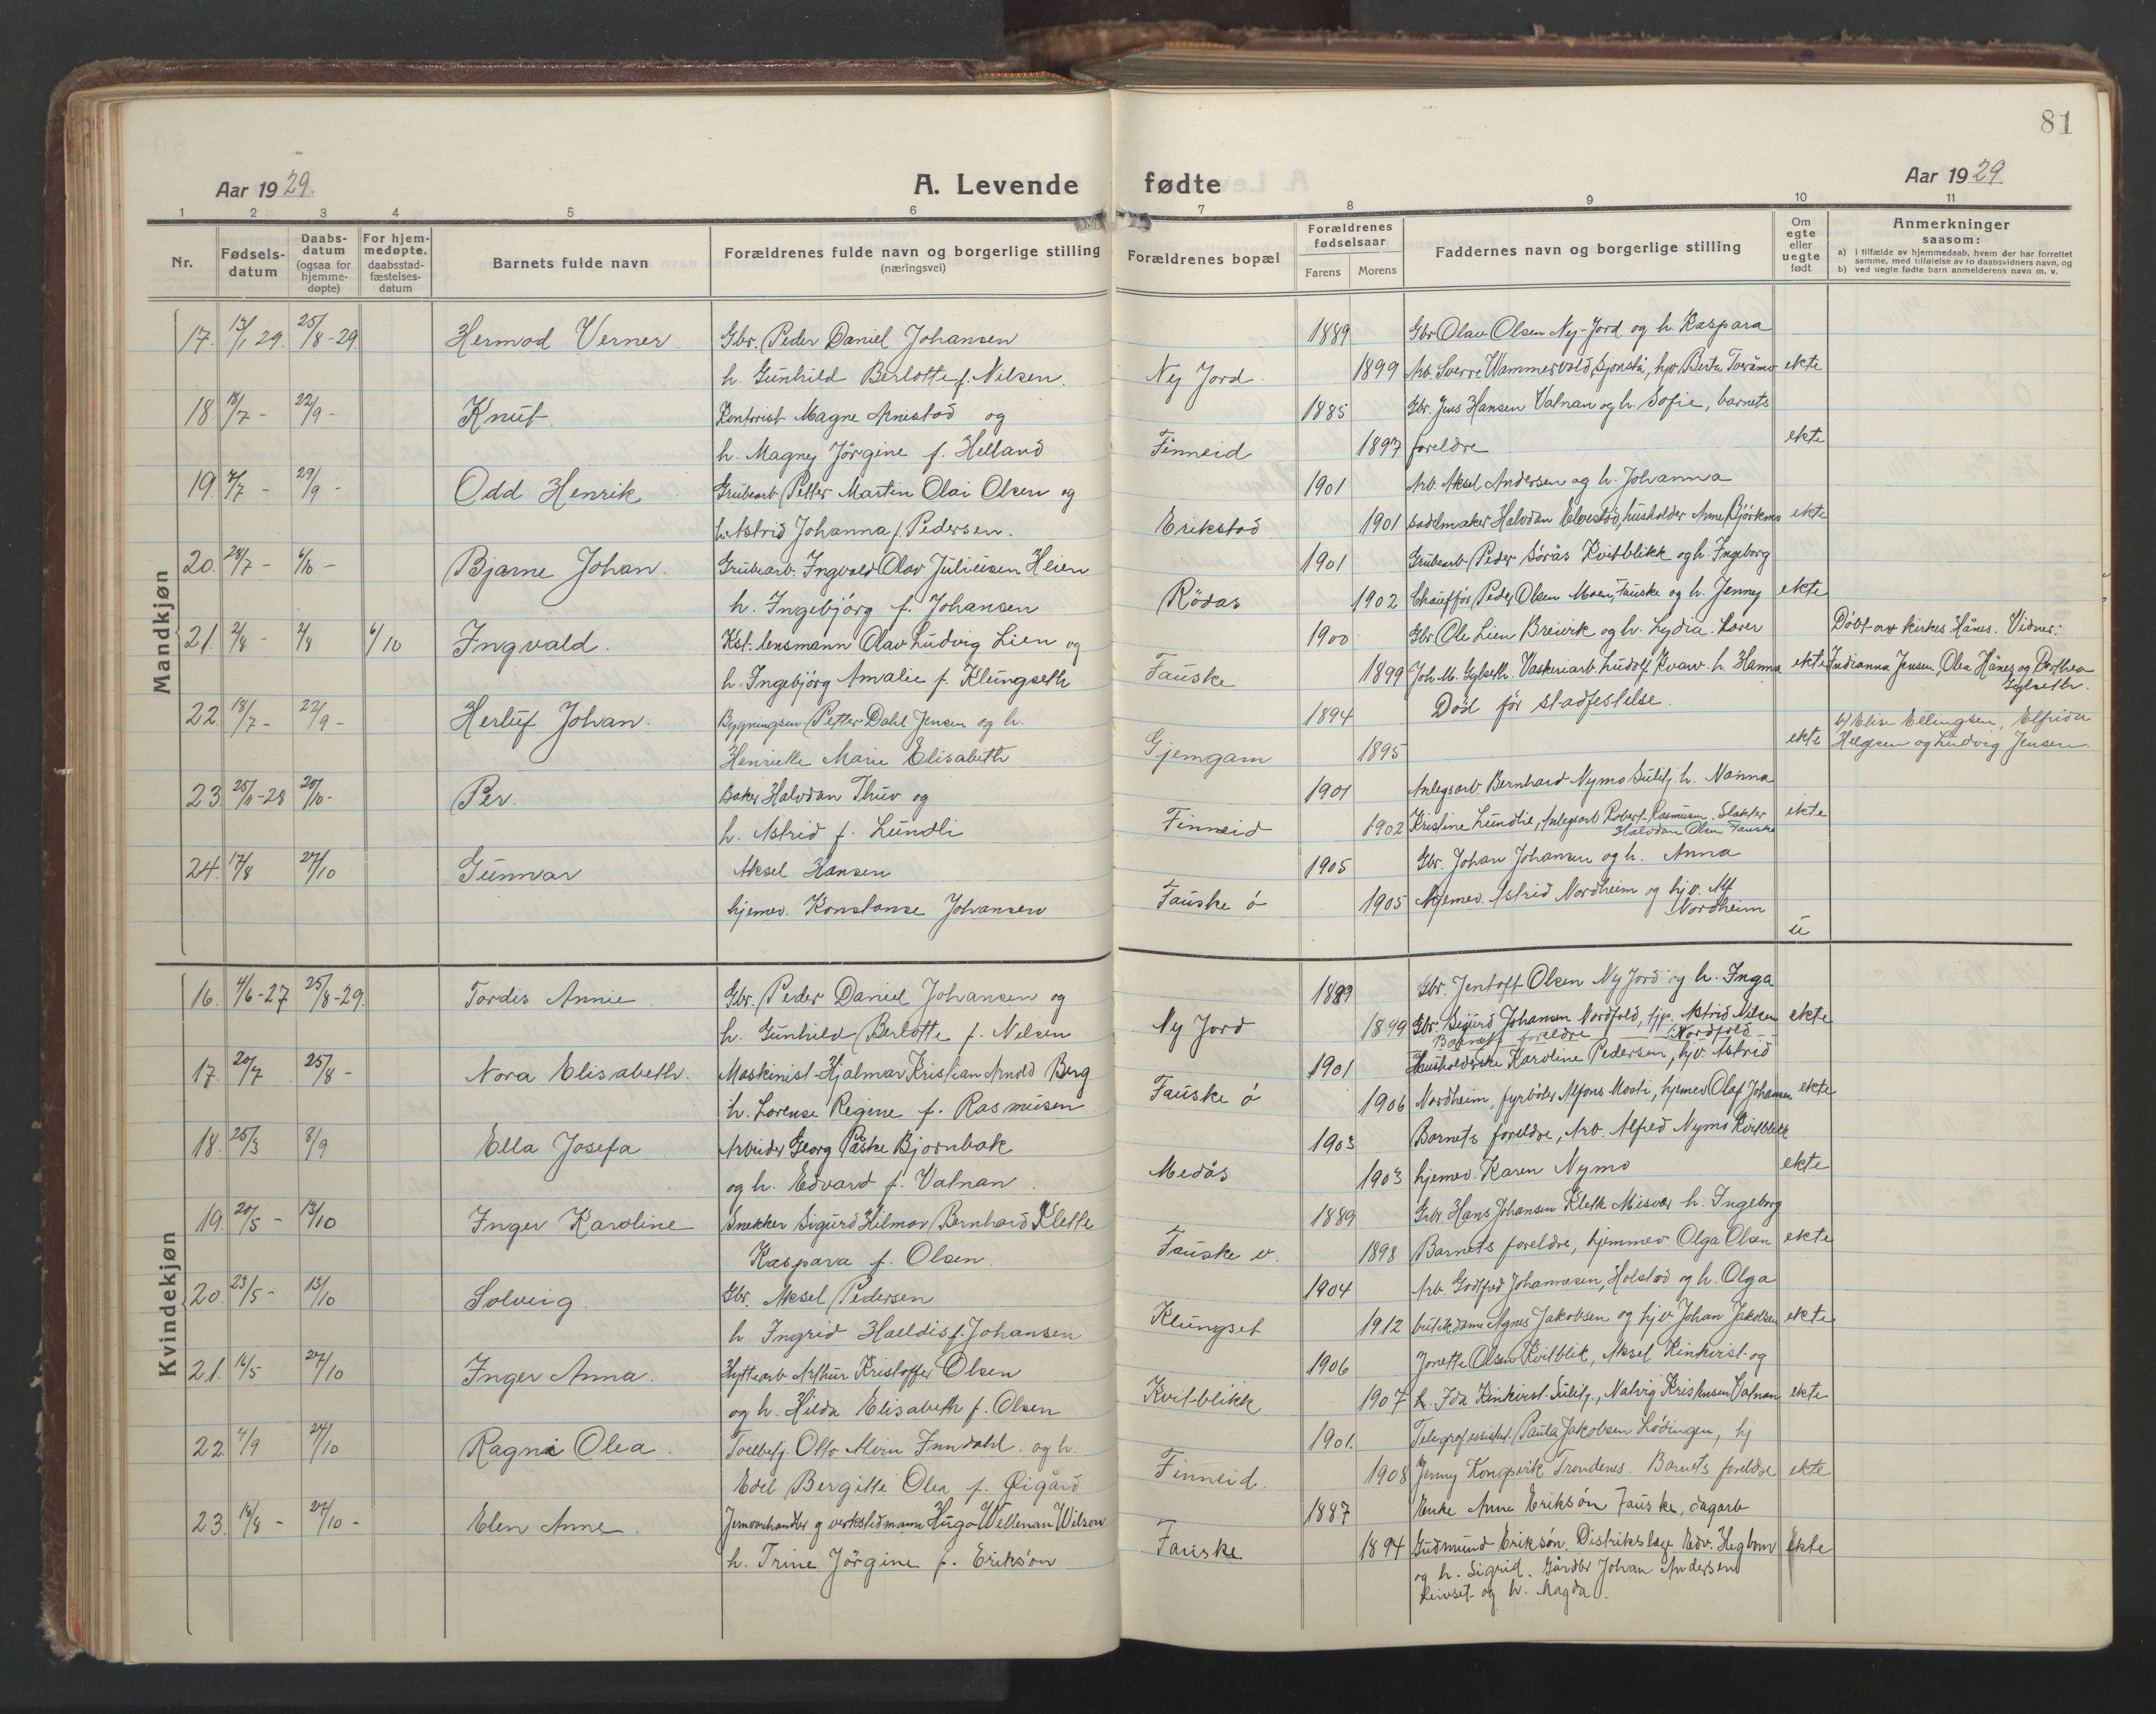 81
Aar 1929. A. Levende fødte Aar 1929
1 2 3 4 5 6 7 8 9 10 11
Nr. Fødsels-datum Daabs-datum (ogsaa for hjemme-døpte) For hjem-medøpte, daabsstad-fæstelses-datum Barnets fulde navn Forældrenes fulde navn og borgerlige stilling (næringsvei) Forældrenes bopæl Forældrenes fødselsaar Farens Morens Faddernes navn og borgerlige stilling Om egte eller uegte født Anmerkninger saasom:
a) i tilfælde av hjemmedaab, hvem der har forrettet samme, med tilføielse av to daabsvidners navn, og
b) ved uegte fødte barn anmelderens navn m. v.
Mandkjøn
17. 13/1 29. 25/8-29. Hermod Verner. Gbr. Peder Daniel Johansen 1889 Gbr Olav Olsen Ny-Jord og h. Kaspara
h. Gunhild Berlotte f. Nilsen. Ny Jord. 1899 Arb. Sverre Hammervold, Sjonstå, hjv Berta Tveråmo ekte
18. 18/7 - 22/9 - Knut. Kontorist Magne Arnistad og 1885 Gbr. Jens Hansen Vatnan og h. Sofie, barnets
h. Magny Jörgine f. Helland Finneid 1897 foreldre ekte
19. 7/7 - 29/9 - Odd Henrik Grubearb Petter Martin Olai Olsen og 1901 Arb. Aksel Andersen og h. Johanna
h. Astrid Johanna f. Pedersen. Erikstad 1901 sadelmaker Halvdan husholder Anne Björkmo ekte
20. 28/7 - 6/10 - Bjarne Johan. Grubearb. Ingvald Olav Juliusen Heien 1901 Grubearb Peder Sørås Kvitblikk og h. Ingeborg
h. Ingebjörg f. Johansen Rödas 1902 Chaufför Peder Olsen Moen, Fauske og h. Jenny ekte
21. 2/8 - 2/8 6/10 Ingvald. Kst. lensmann Olav Ludvig Lien og 1900 Gbr Ole Lien Breivik og h. Lydia. Lærer Döbt av kirkes. Hånes. Vidner:
h. Ingebjörg Amalie f. Klungseth Fauske 1899 Joh M. Gylseth. Vaskeriarb Ludolf Kvarv. h. Hanna ekte Indianna Jensen, Olea Hånes og Dorthea Gylseth.
22. 18/7 - 22/9 - Herluf Johan. Bygningsm Petter Dahl Jensen og h. 1894 Död för stadfestelse. b/ Elise Ellingsen, Elfrida
Henrielle Marie Elisabeth Gjemgam 1895 ekte Helgesen og Ludvig Jensen.
23. 25/11-28 20/10 - Per. Baker Halvdan Thuv og 1901 Anlegsarb Bernhard Nymo Sulitj. h. Nanna
h. Astrid f. Lundli Finneid 1902 Kristine Lundlie, Anlegsarb Robert Rasmusen. Slakter Halvdan Olsen Fauske ekte
24. 17/8 27/10 Gunnar Aksel Hansen 1905 Gbr. Johan Johansen og h. Anna
hjemev. Konstanse Johansen Fauske ö 1905 Hjemev. Astrid Nordheim og hjv. Alf Nordheim
u
Kvindekjøn
16. 4/6-27 25/8-29. Tordis Annie. Gbr. Peder Daniel Johansen og 1889 Gbr. Jentoft Olsen Ny Jord og h. Inga
h. Gunhild Berlotte f. Nilsen Ny Jord 1899 Gbr. Sigurd Johansen Nordfold, tjp. Astrid Nilsen ekte
Barnets foreldre Nordfold
17. 20/7 25/8 - Nora Elisabeth. Maskinist Hjalmar Kristian Arnold Berg 1901 Husholderske Karoline Pedersen, hjv. Astrid
h. Lorense Regine f. Rasmusen Fauske ö 1906 Nordheim, fyrböter Alfons Mosti, hjemev Olaf Johansen ekte
18. 25/3 8/9 Ella Josefa Arbeider Georg Påske Bjornbak 1903 Barnets foreldre, Arb. Alfred Nymo Kvitblikk
og h. Edvard f. Vatnan. Medås 1903 hjemev. Karen Nymo ekte
19. 20/5 - 13/10 Inger Karoline Snekker Sigurd Hilmar Bernhard Klette 1889 Gbr Hans Johansen Klette Misvær h. Ingeborg
Kaspara f. Olsen. Fauske v. 1898 Barnets foreldre, hjemmev. Olga Olsen ekte
20. 23/5 - 13/10 Solveig. Gbr. Aksel Pedersen 1904 Arb. Godtfred Johannesen, Holstad og h. Olga
h. Ingrid Haeldis f. Johansen Klungset 1912 butikdame Agnes Jakobsen og hjv. Johan Jakobsen ekte
21. 16/5 27/10 Inger Anna. Hyttearb Arthur Kristoffer Olsen 1906 Jonette Olsen Kvitblik, Aksel Kinkirst og
og h. Hilda Elisabeth f. Olsen Kvitblikk 1907 h. Ida Kinkirst Sulitj., Malvig Kristensen Vatnan ekte
22. 4/9 27/10 Ragni Olea. Tollbetj. Otto Inndahl. og h. 1901. Telegrafassistent. Paula Jakobsen Lödingen, hj
Edel Bergitte Olea f. Öigård Finneid. 1908 Jenny Kongsvik Trondenes. Barnets foreldre ekte
23. 16/8 - 27/10 - Elen Anne. Jernvarehandler og verkstedmann Hugo Wellenau Wilson 1887 Enke Anne Eriksön Fauske, dagarb
h. Trine Jörgine f. Eriksön Fauske 1894 Gudmund Eriksön. Distriktslege Edv. Hegbom ekte
og h. Sigrid. Gårdbr Johan Andersen
Leivset og h. Magda.